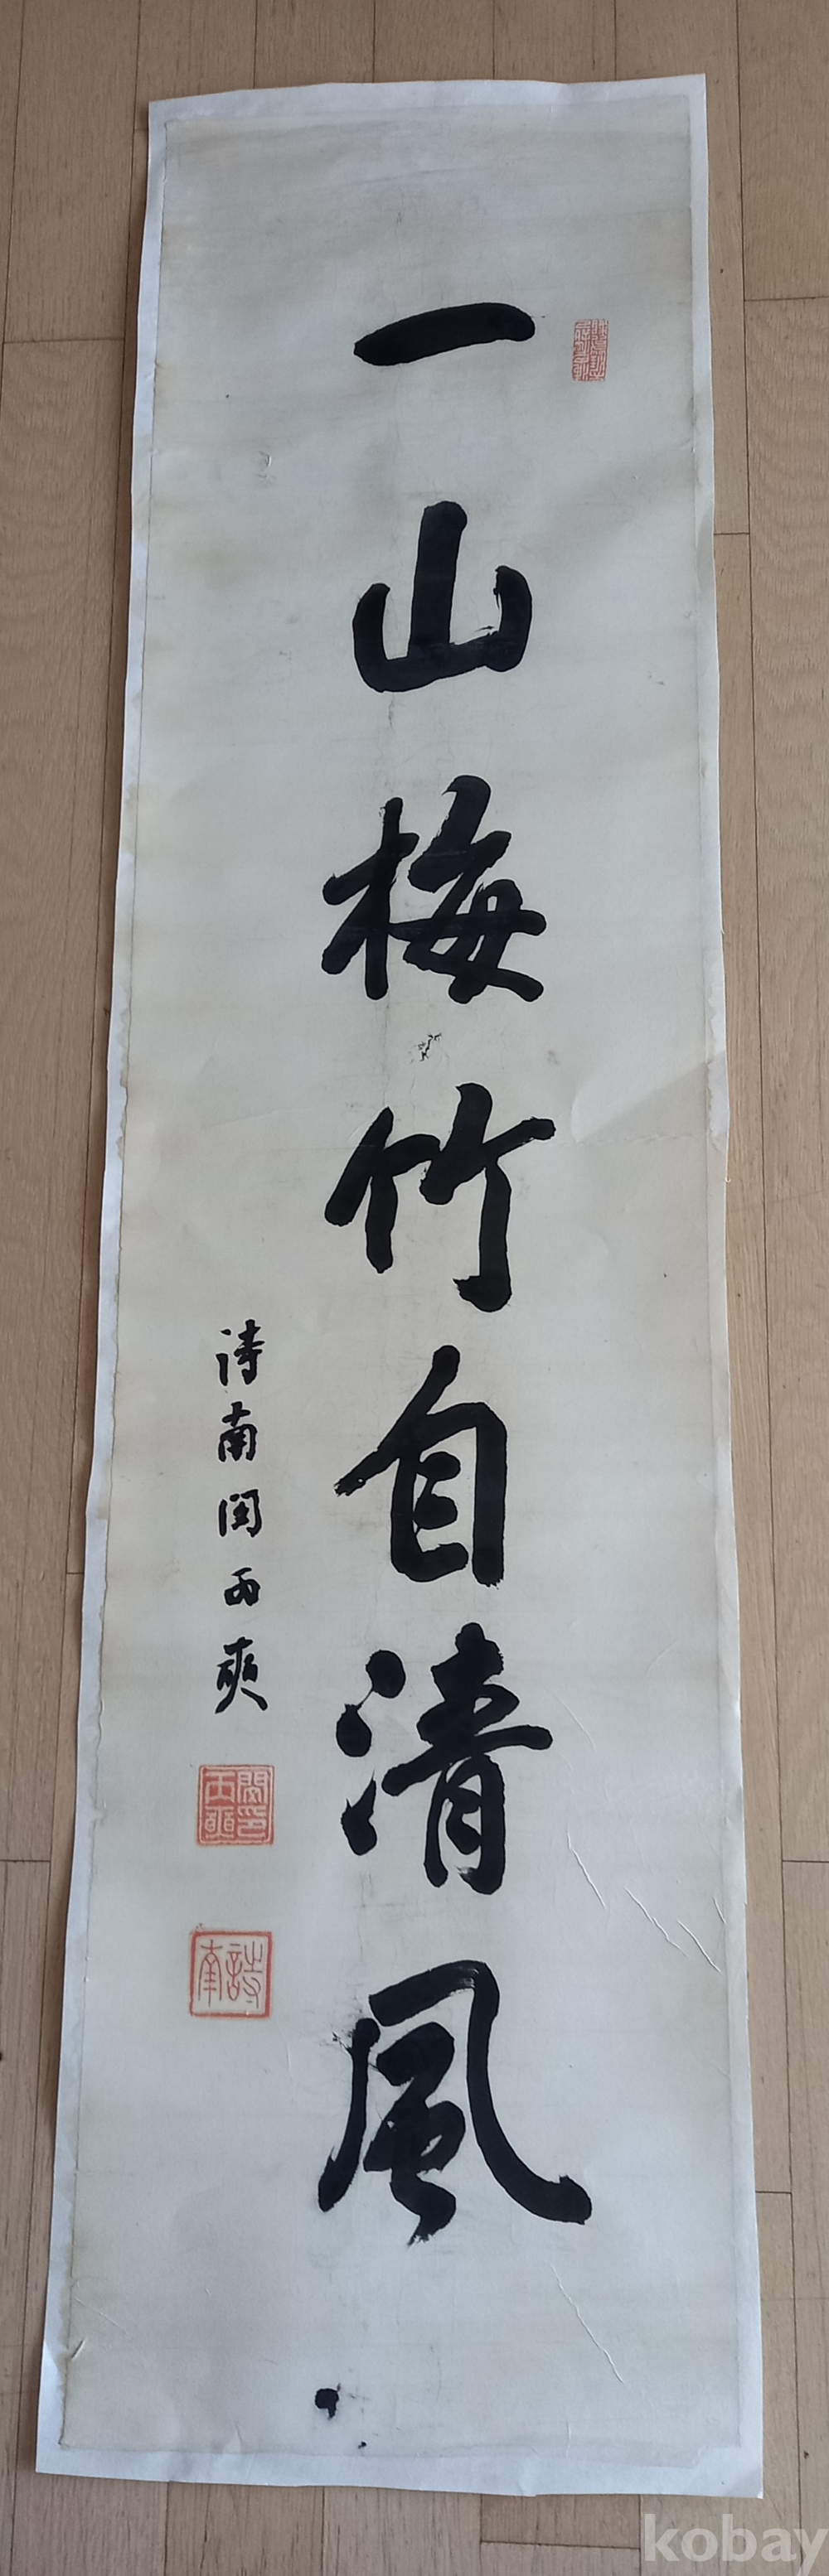 一山梅竹自清風
詩南閔丙奭
閔印丙奭
詩南
kobay